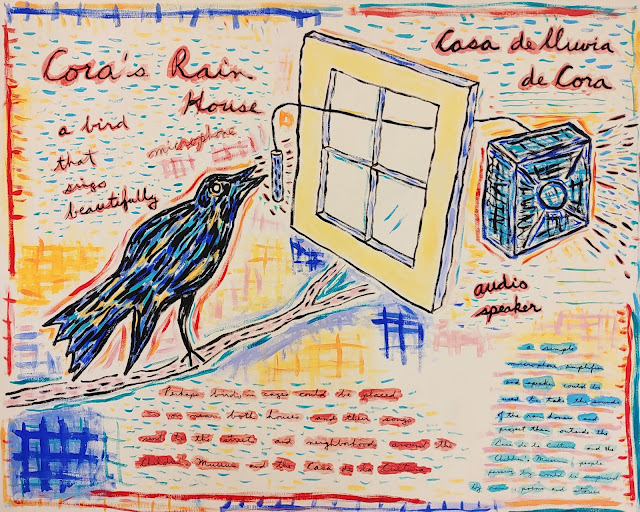 Cora's Rain
House
Casa de lluvia
de Cora
a bird
that
sings
beautifully
microphone
audio
speaker
Perhaps birds in cages could be placed
in both houses and their songs
to the streets and neighborhoods around the
Children's Museum and the Casa de la Cultura
a simple
microphone, amplifier
and speaker could be
used to take the sound
of the rain house and
project them outside the
Casa de la Cultura and the
Children's Museum, people
passing by would be surprised
by